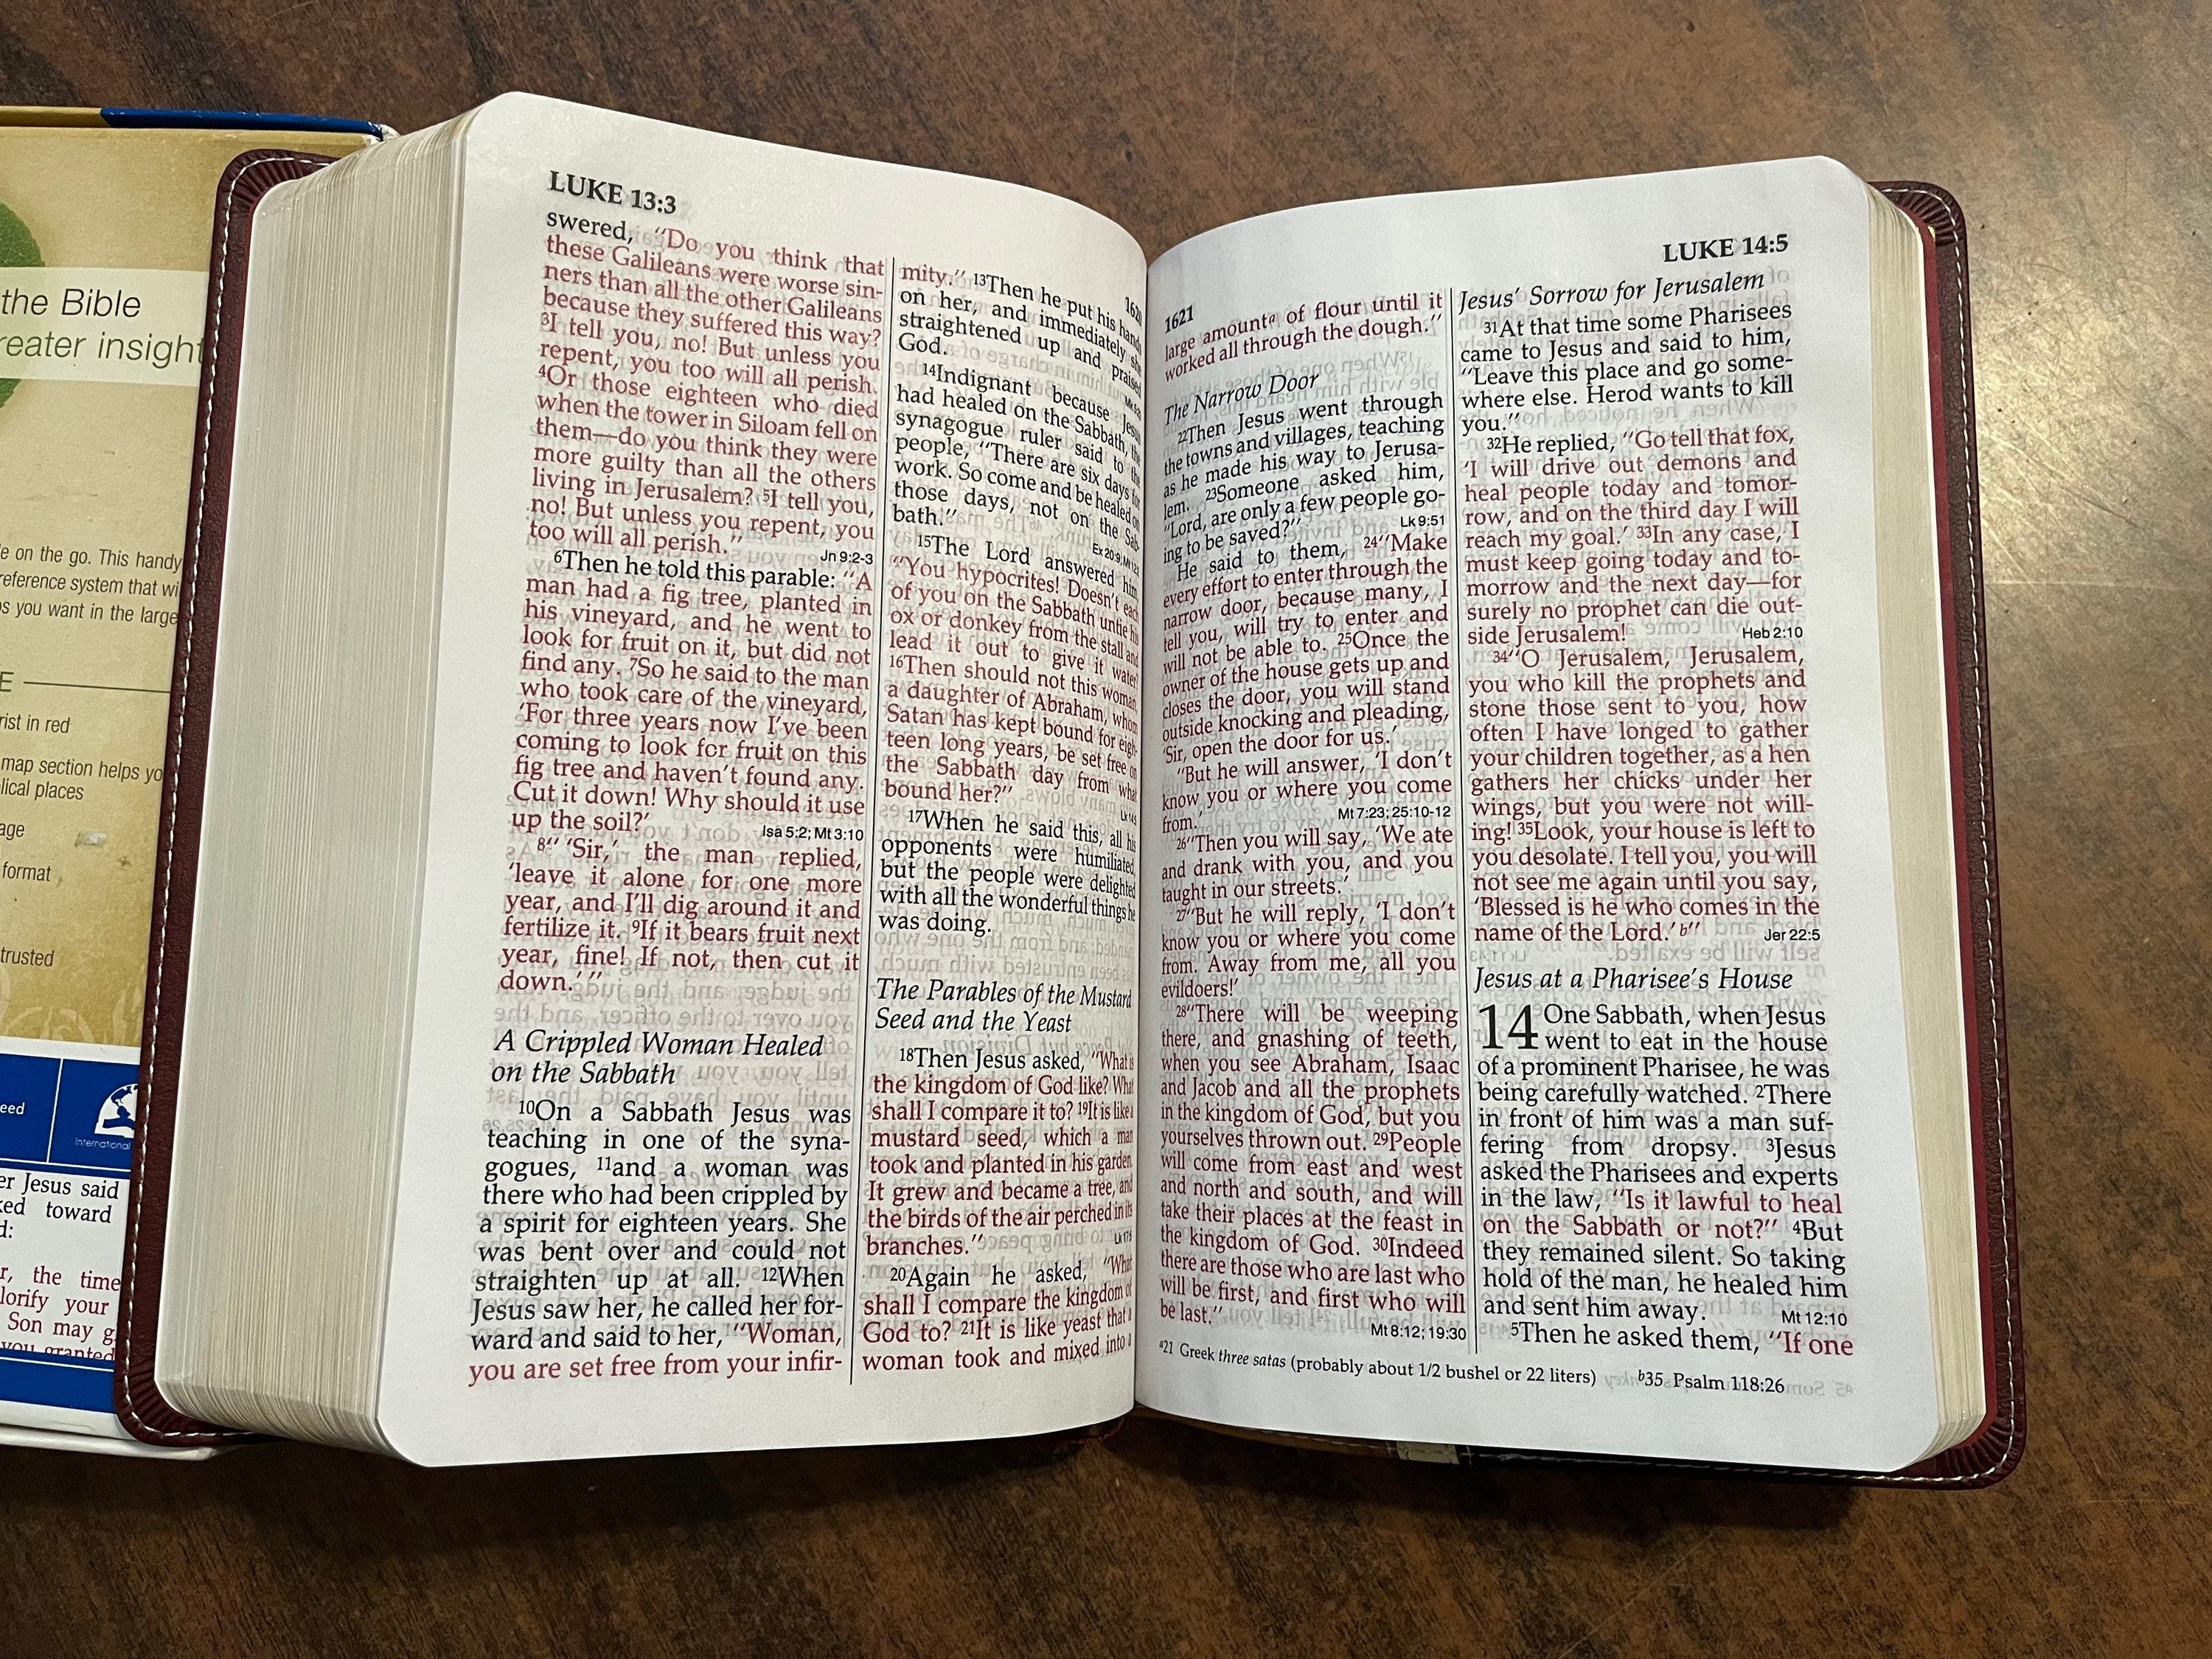 the Bible
reater insight
e on the go. This handy
reference system that wi
s you want in the large
E
rist in red
map section helps yo
lical places
age
format
trusted
eed
International
er Jesus said
ked toward
d:
r, the time
lorify your
Son may g
you granted
LUKE 13:3
swered, “Do you think that
these Galileans were worse sin-
ners than all the other Galileans
because they suffered this way?
3I tell you, no! But unless you
repent, you too will all perish.
4Or those eighteen who died
when the tower in Siloam fell on
them—do you think they were
more guilty than all the others
living in Jerusalem? 5I tell you,
no! But unless you repent, you
too will all perish.” Jn 9:2-3
6Then he told this parable: “A
man had a fig tree, planted in
his vineyard, and he went to
look for fruit on it, but did not
find any. 7So he said to the man
who took care of the vineyard,
‘For three years now I’ve been
coming to look for fruit on this
fig tree and haven’t found any.
Cut it down! Why should it use
up the soil?’ Isa 5:2; Mt 3:10
8“ ‘Sir,’ the man replied,
‘leave it alone for one more
year, and I’ll dig around it and
fertilize it. 9If it bears fruit next
year, fine! If not, then cut it
down.’ ”
A Crippled Woman Healed
on the Sabbath
10On a Sabbath Jesus was
teaching in one of the syna-
gogues, 11and a woman was
there who had been crippled by
a spirit for eighteen years. She
was bent over and could not
straighten up at all. 12When
Jesus saw her, he called her for-
ward and said to her, “Woman,
you are set free from your infir-
1620
mity.” 13Then he put his hands
on her, and immediately she
straightened up and praised
God.
14Indignant because Jesus
had healed on the Sabbath, the
synagogue ruler said to the
people, “There are six days for
work. So come and be healed on
those days, not on the Sab-
bath.” Ex 20:9;
15The Lord answered him,
“You hypocrites! Doesn’t each
of you on the Sabbath untie his
ox or donkey from the stall and
lead it out to give it water?
16Then should not this woman,
a daughter of Abraham, whom
Satan has kept bound for eigh-
teen long years, be set free on
the Sabbath day from what
bound her?”
17When he said this, all his
opponents were humiliated,
but the people were delighted
with all the wonderful things he
was doing.
The Parables of the Mustard
Seed and the Yeast
18Then Jesus asked, “What is
the kingdom of God like? What
shall I compare it to? 19It is like a
mustard seed, which a man
took and planted in his garden.
It grew and became a tree, and
the birds of the air perched in its
branches.” Lk 17:6
20Again he asked, “What
shall I compare the kingdom of
God to? 21It is like yeast that a
woman took and mixed into a
1621
large amounta of flour until it
worked all through the dough.”
The Narrow Door
22Then Jesus went through
the towns and villages, teaching
as he made his way to Jerusa-
lem. 23Someone asked him,
“Lord, are only a few people go-
ing to be saved?” Lk 9:51
He said to them, 24“Make
every effort to enter through the
narrow door, because many, I
tell you, will try to enter and
will not be able to. 25Once the
owner of the house gets up and
closes the door, you will stand
outside knocking and pleading,
‘Sir, open the door for us.’
“But he will answer, ‘I don’t
know you or where you come
from.’ Mt 7:23; 25:10-12
26“Then you will say, ‘We ate
and drank with you, and you
taught in our streets.’
27“But he will reply, ‘I don’t
know you or where you come
from. Away from me, all you
evildoers!’
28“There will be weeping
there, and gnashing of teeth,
when you see Abraham, Isaac
and Jacob and all the prophets
in the kingdom of God, but you
yourselves thrown out. 29People
will come from east and west
and north and south, and will
take their places at the feast in
the kingdom of God. 30Indeed
there are those who are last who
will be first, and first who will
be last.” Mt 8:12; 19:30
LUKE 14:5
Jesus’ Sorrow for Jerusalem
31At that time some Pharisees
came to Jesus and said to him,
“Leave this place and go some-
where else. Herod wants to kill
you.”
32He replied, “Go tell that fox,
‘I will drive out demons and
heal people today and tomor-
row, and on the third day I will
reach my goal.’ 33In any case, I
must keep going today and to-
morrow and the next day—for
surely no prophet can die out-
side Jerusalem! Heb 2:10
34“O Jerusalem, Jerusalem,
you who kill the prophets and
stone those sent to you, how
often I have longed to gather
your children together, as a hen
gathers her chicks under her
wings, but you were not will-
ing! 35Look, your house is left to
you desolate. I tell you, you will
not see me again until you say,
‘Blessed is he who comes in the
name of the Lord.’b” Jer 22:5
Jesus at a Pharisee’s House
14 One Sabbath, when Jesus
went to eat in the house
of a prominent Pharisee, he was
being carefully watched. 2There
in front of him was a man suf-
fering from dropsy. 3Jesus
asked the Pharisees and experts
in the law, “Is it lawful to heal
on the Sabbath or not?” 4But
they remained silent. So taking
hold of the man, he healed him
and sent him away. Mt 12:10
5Then he asked them, “If one
a21 Greek three satas (probably about 1/2 bushel or 22 liters) b35 Psalm 118:26